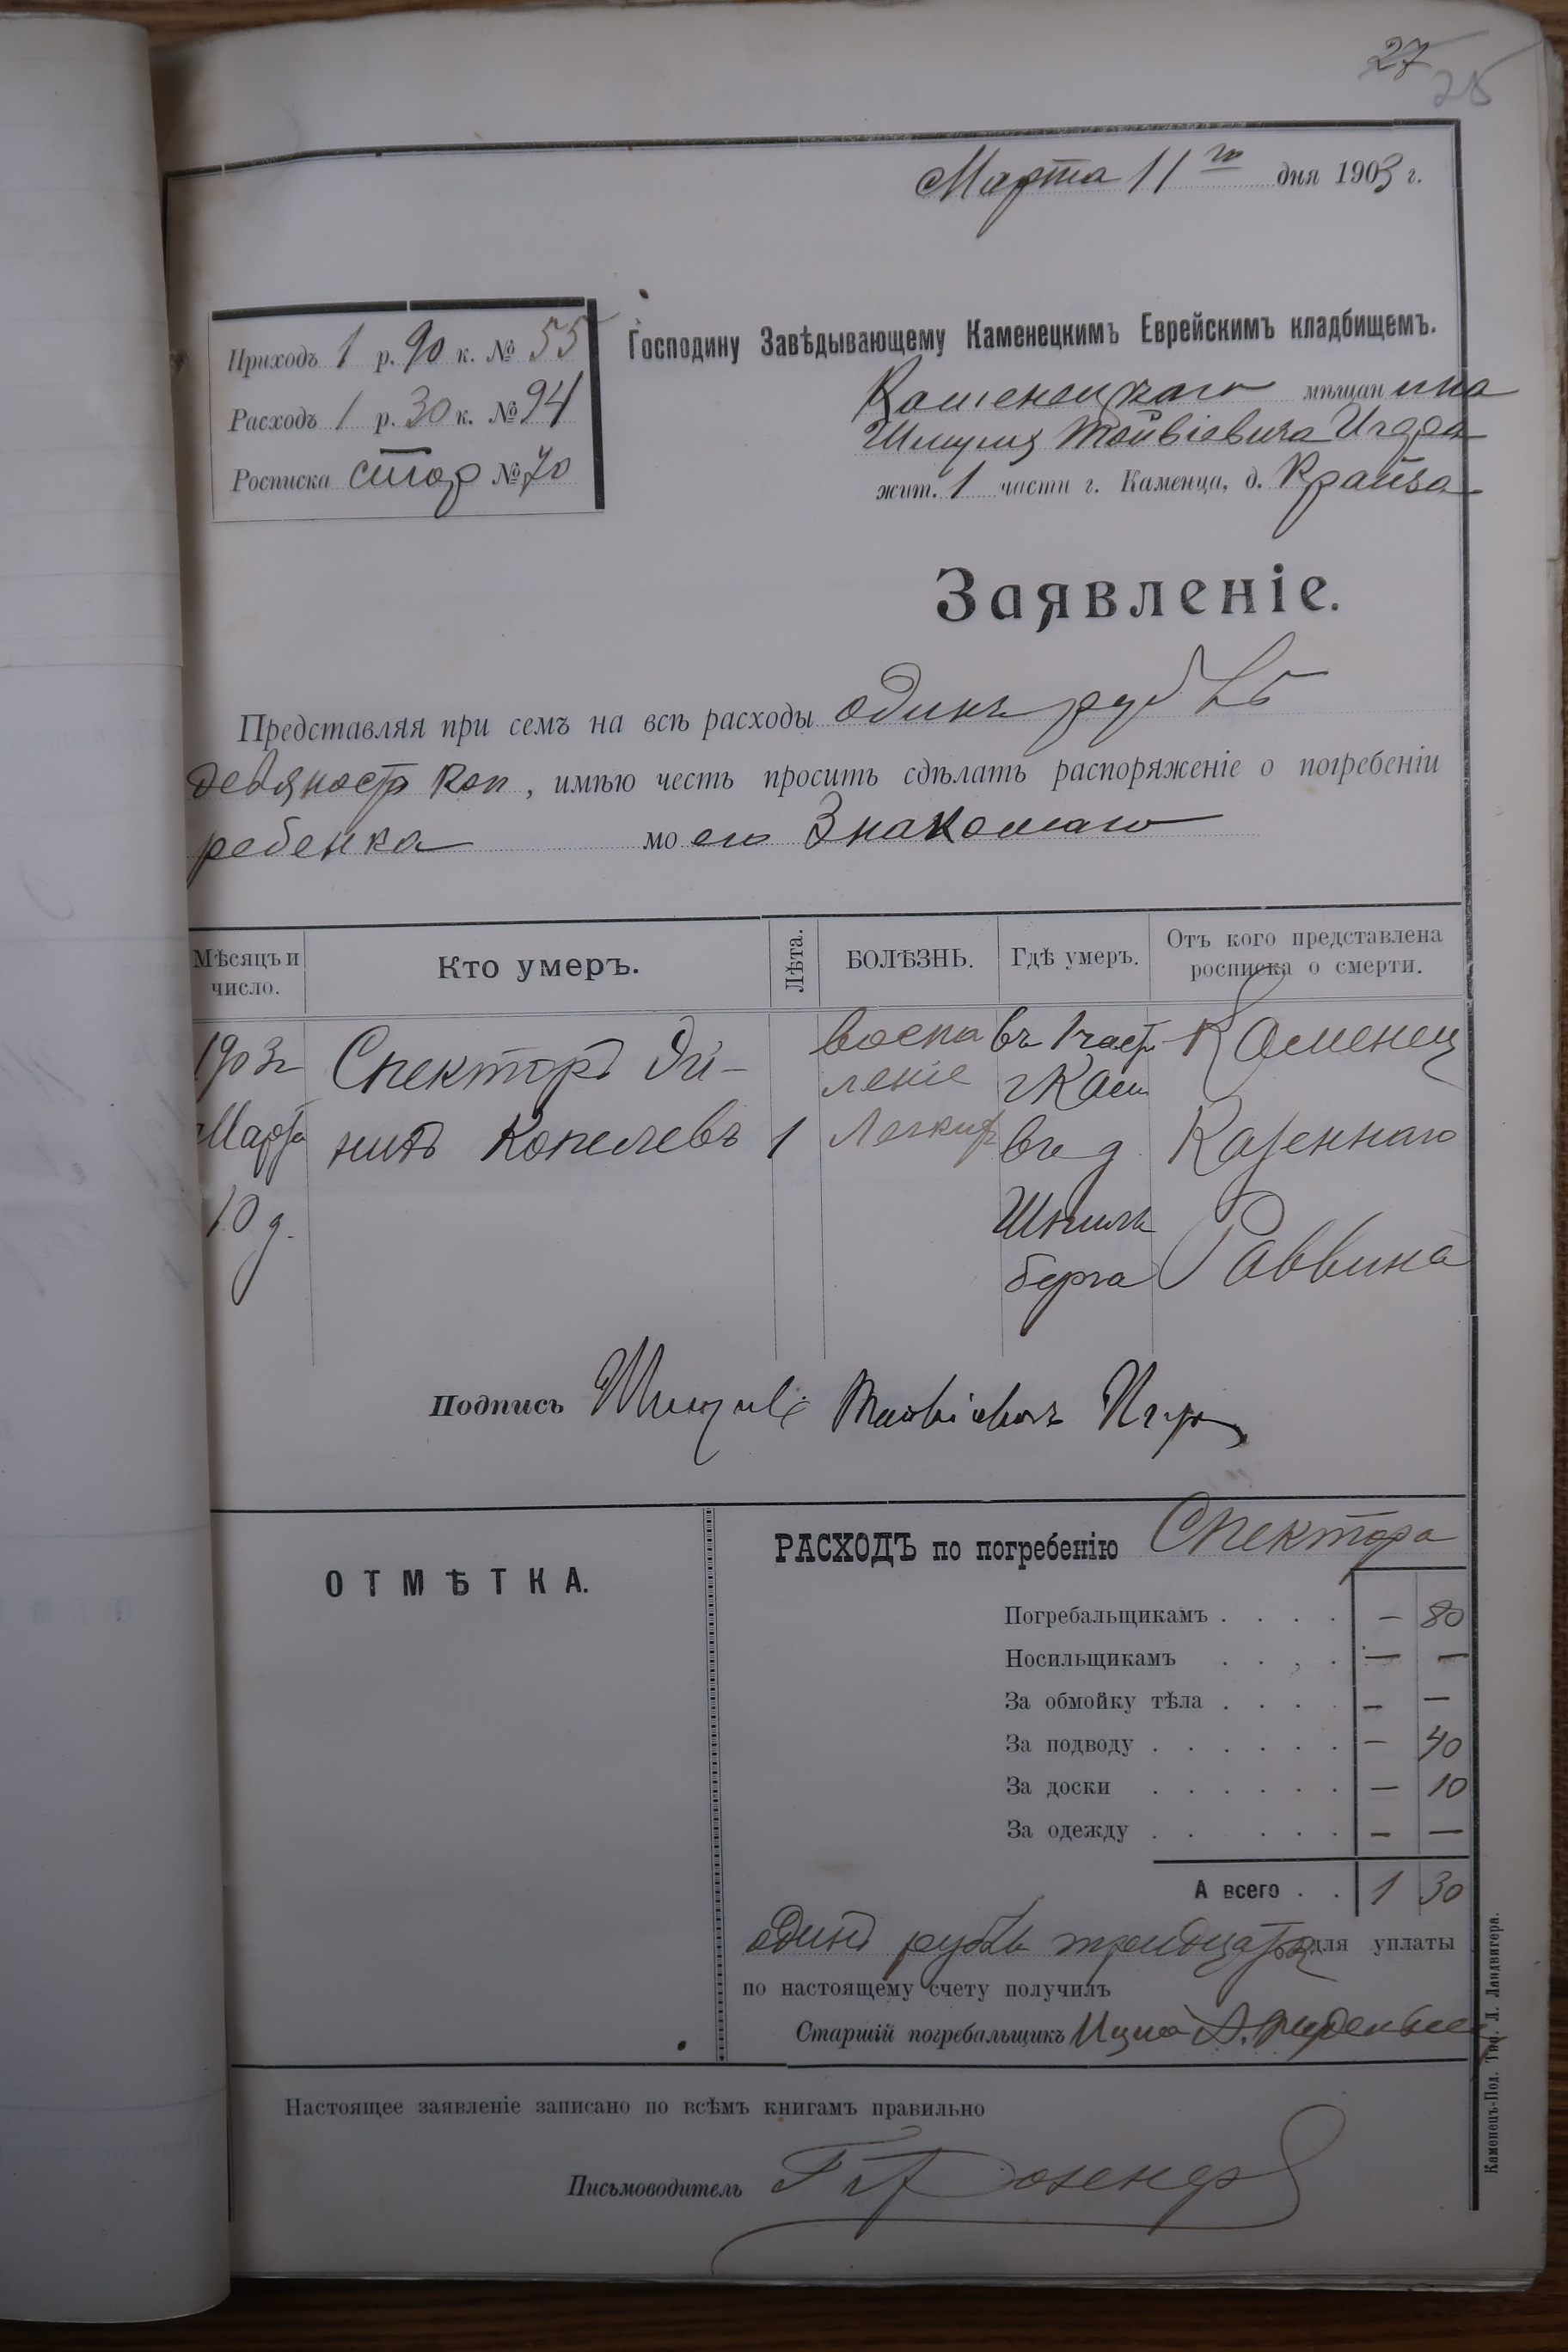 27
25
Марта 11го дня 1903 г.
Приходъ 1 р. 90 к. № 55
Расходъ 1 р. 30 к. № 94
Росписка стор № 70
Господину Завѣдывающему Каменецкимъ Еврейскимъ кладбищемъ.
Каменецкаго мѣщанина
Шмуля Тойвіевича Игдра
жит. 1 части г. Каменца, д. Крайза
Заявленіе.
Представляя при семъ на всѣ расходы одинъ рубль
девяносто коп, имѣю честь просить сдѣлать распоряженіе о погребеніи
ребенка моего знакомаго
Мѣсяцъ и число.
Кто умеръ.
Лѣта.
БОЛѢЗНЬ.
Гдѣ умеръ.
Отъ кого представлена росписка о смерти.
1903г
Марта
10 д.
Спекторъ
Копелевъ
1
воспа
леніе
Легких
въ 1 част
г Кам
въ д
Шпиль
берга
Каменец
Казеннаго
Раввина
Подпись Шмуль Игдра
ОТМѢТКА.
РАСХОДЪ по погребенію Спектора
Погребальщикамъ . . . . — 80
Носильщикамъ . . , . — —
За обмойку тѣла . . . . — —
За подводу . . . . . . — 40
За доски . . . . . . — 10
За одежду . . . . . . — —
А всего . . 1 30
одинъ рубль тридцать для уплаты
по настоящему счету получилъ
Старшій погребальщикъ Ицко
Настоящее заявленіе записано по всѣмъ книгамъ правильно
Письмоводитель
Каменецъ-Под. Тип. Л. Ландвигера.